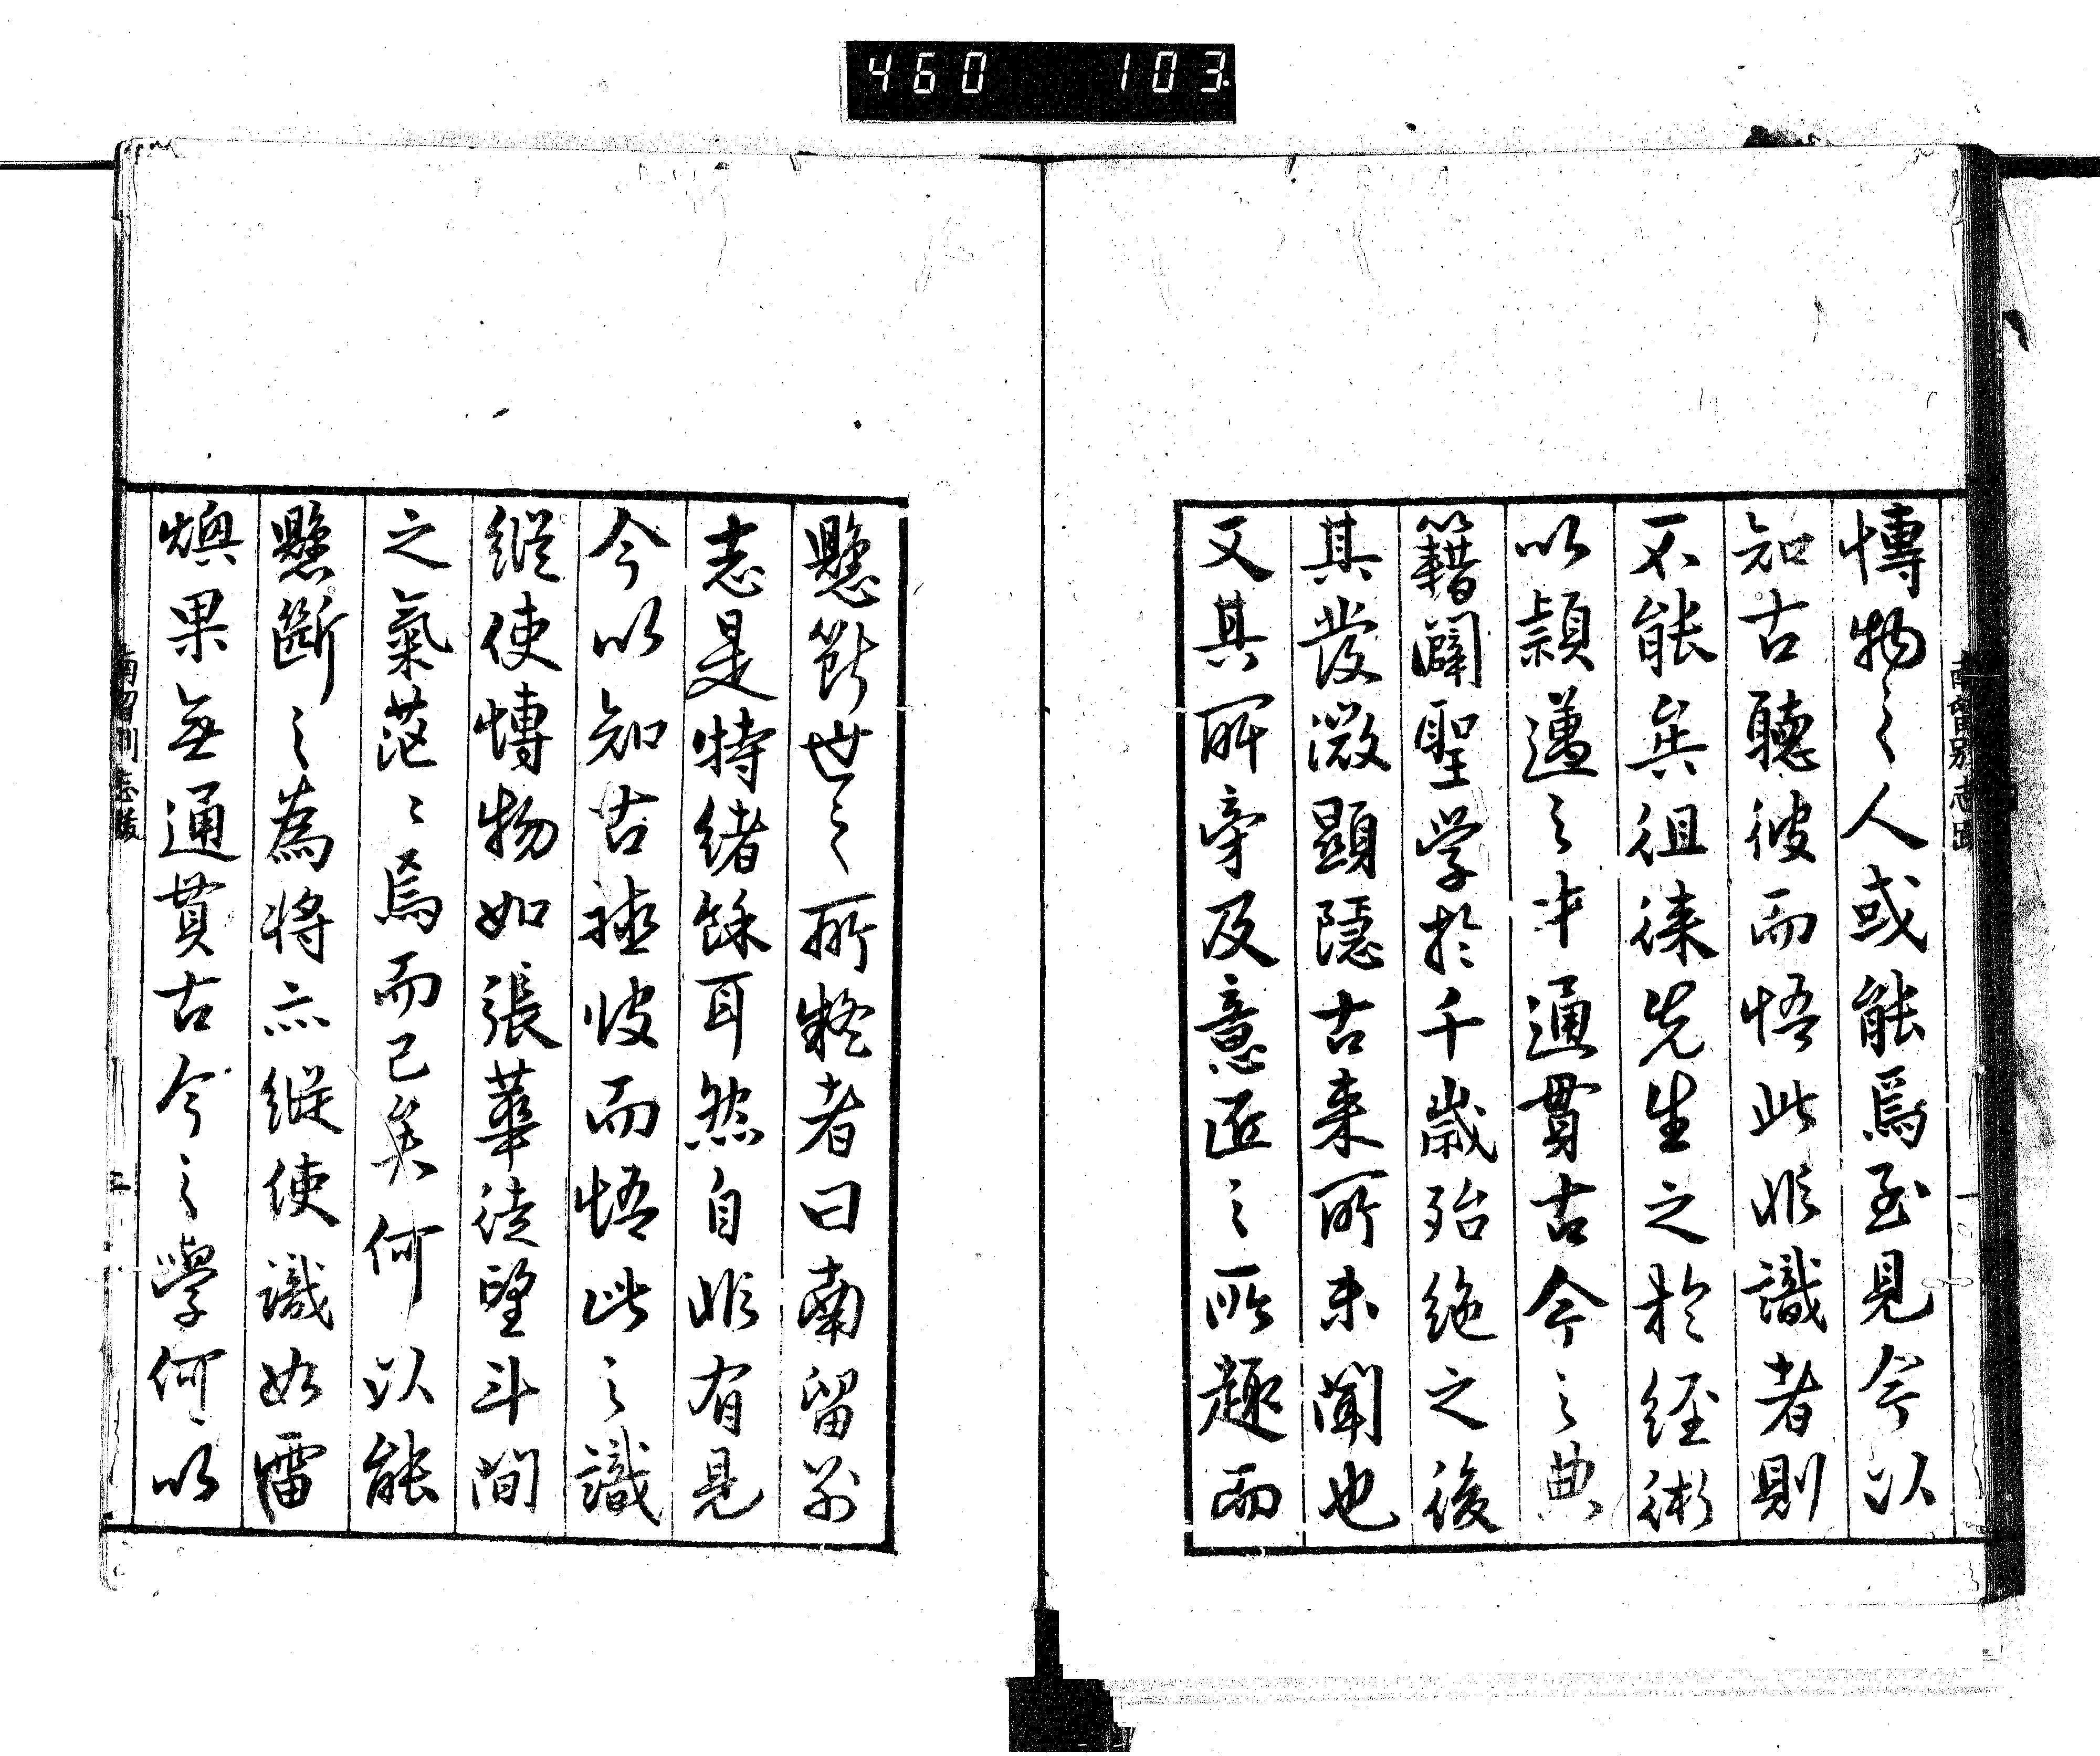 460 103
愽物之人或能焉至見今以
知古聽彼而悟此非識者則
不能矣徂徠先生之於經術
以穎邁之才通貫古今之典
籍闡聖学於千歳殆絶之後
其發微顯隱古来所未聞也
又其所旁及意匠之所趣而
懸斷世之所疑者曰南留別
志是特緒餘耳然自非有見
今以知古極彼而悟此之識
縱使愽物如張華徒望斗間
之氣茫〻焉而已矣何以能
懸斷之為将亦縱使識如雷
煥果無通貫古今之學何以
南留別志